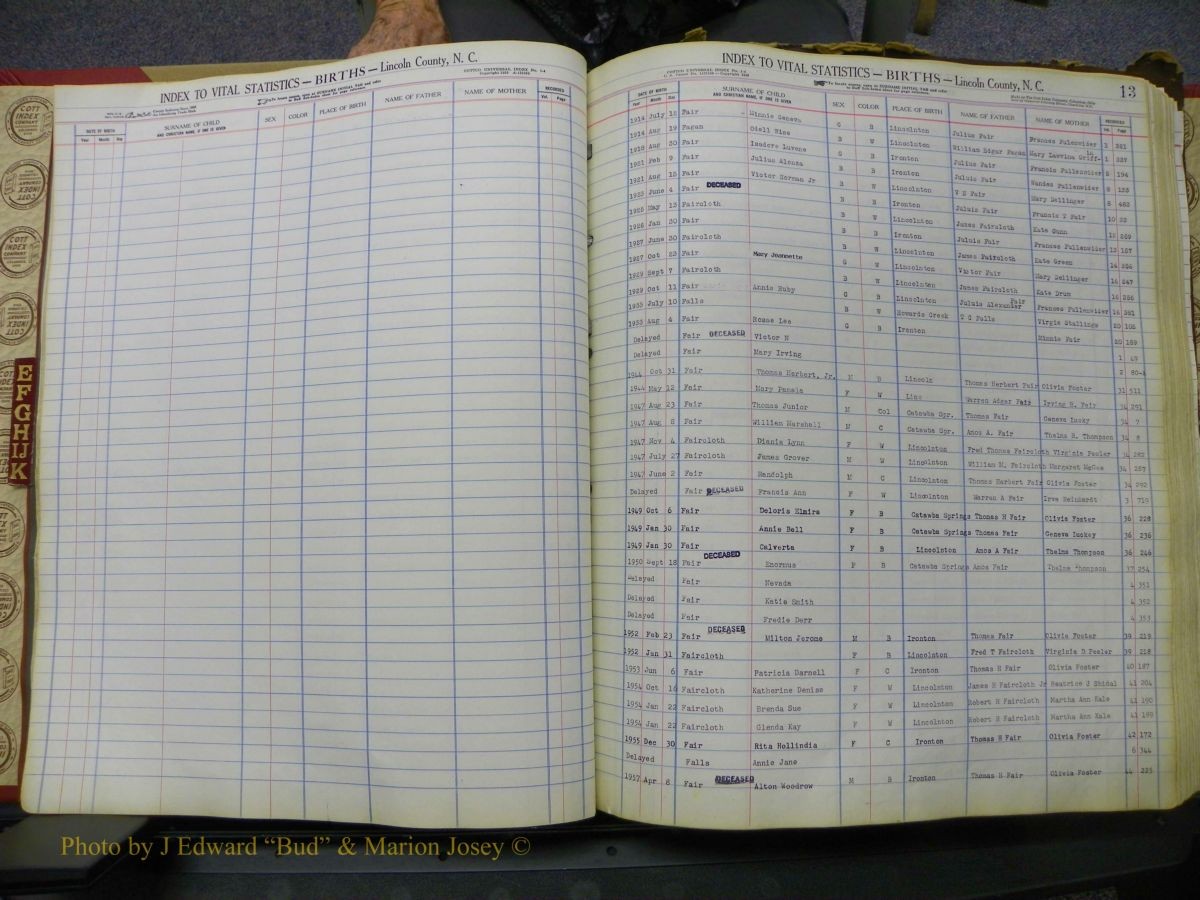 INDEX TO VITAL STATISTICS — BIRTHS — Lincoln County, N. C.
DATE OF BIRTH
SURNAME OF CHILD
AND CHRISTIAN NAME, IF ONE IS GIVEN
SEX
COLOR
PLACE OF BIRTH
NAME OF FATHER
NAME OF MOTHER
RECORDED
Year Month Day
Vol. Page
INDEX TO VITAL STATISTICS — BIRTHS — Lincoln County, N. C.
13
DATE OF BIRTH
SURNAME OF CHILD
AND CHRISTIAN NAME, IF ONE IS GIVEN
SEX
COLOR
PLACE OF BIRTH
NAME OF FATHER
NAME OF MOTHER
RECORDED
Year Month Day
Vol. Page
1914 July 18 Fair Minnie Geneva G B Lincolnton Julius Fair
1914 Aug 19 Fagan Odell Wise B W Lincolnton William Edgar Fagan
Aug 30 Fair Isadore Luvene G B Ironton Julius Fair
1921 Feb 9 Fair Julius Alonza B B Ironton
1921 Aug 15 Fair Victor Herman Jr B W Lincolnton V H Fair Mary Dellinger
June 4 Fair DECEASED B B Ironton
May 13 Faircloth B W Lincolnton James Faircloth Kate Gunn
Jan 30 Fair B B Ironton
1927 June 20 Faircloth B W Lincolnton James Faircloth Kate Green
1927 Oct 23 Fair Mary Jeannette G W Lincolnton Victor Fair Mary Dellinger
1929 Sept 7 Faircloth B W Lincolnton James Faircloth Kate Drum
1929 Oct 11 Fair Annie Ruby G B Lincolnton Juluis Alexander Fair
1933 July 10 Falls B W Howards Creek T C Falls Virgie Stallings 20 105
1933 Aug 4 Fair Rosae Lee G B Ironton Minnie Fair 20 189
Delayed Fair DECEASED Victor N 1 49
Delayed Fair Mary Irving 2 80-A
1944 Oct 31 Fair Thomas Herbert, Jr. M B Lincoln Thomas Herbert Fair Olivia Foster 31 511
1944 May 12 Fair Mary Pamela F W Linc Warren Adger Fair Irving H. Fair 34 291
1947 Aug 23 Fair Thomas Junior M Col Catawba Spr. Thomas Fair Geneva Lucky 34 7
1947 Aug 8 Fair William Marshall M C Catawba Spr. Amos A. Fair Thelma R. Thompson 34 8
1947 Nov 4 Faircloth Diania Lynn F W Lincolnton Fred Thomas Faircloth Virginia Peeler 34 282
1947 July 27 Faircloth James Grover M W Lincolnton William M. Faircloth Margaret McGee 34 267
1947 June 2 Fair Randolph M C Lincolnton Thomas Herbert Fair Olivia Foster 34 292
Delayed Fair DECEASED Francis Ann F W Lincolnton Warren A Fair Irva Reinhardt 3 719
1949 Oct 6 Fair Deloris Elmira F B Catawba Springs Thomas H Fair Olivia Foster 36 228
1949 Jan 30 Fair Annie Bell F B Catawba Springs Thomas Fair Geneva Luckey 36 236
1949 Jan 30 Fair Calverta F B Lincolnton Amos A Fair Thelma Thompson 36 246
1950 Sept 18 Fair DECEASED Enormus F B Catawba Springs Amos Fair Thelma Thompson 37 254
Delayed Fair Nevada 4 351
Delayed Fair Katie Smith 4 352
Delayed Fair Fredie Derr 4 353
1952 Feb 23 Fair DECEASED Milton Jerome M B Ironton Thomas Fair Olivia Foster 39 219
1952 Jan 31 Faircloth F B Lincolnton Fred T Faircloth Virginia D Peeler 39 218
1953 Jun 6 Fair Patricia Darnell F C Ironton Thomas H Fair Olivia Foster 40 187
1954 Oct 16 Faircloth Katherine Denise F W Lincolnton James H Faircloth Jr Beatrice J Shidal 41 204
1954 Jan 22 Faircloth Brenda Sue F W Lincolnton Robert H Faircloth Martha Ann Kale 41 190
1954 Jan 22 Faircloth Glenda Kay F W Lincolnton Robert H Faircloth Martha Ann Kale 41 199
1955 Dec 30 Fair Rita Hellindia F C Ironton Thomas H Fair Olivia Foster 42 172
Delayed Falls Annie Jane 6 344
1957 Apr 8 Fair DECEASED Alton Woodrow M B Ironton Thomas H Fair Olivia Foster 44 225
COTT INDEX COMPANY
E
F
G
H
I
J
K
Photo by J Edward “Bud” & Marion Josey ©